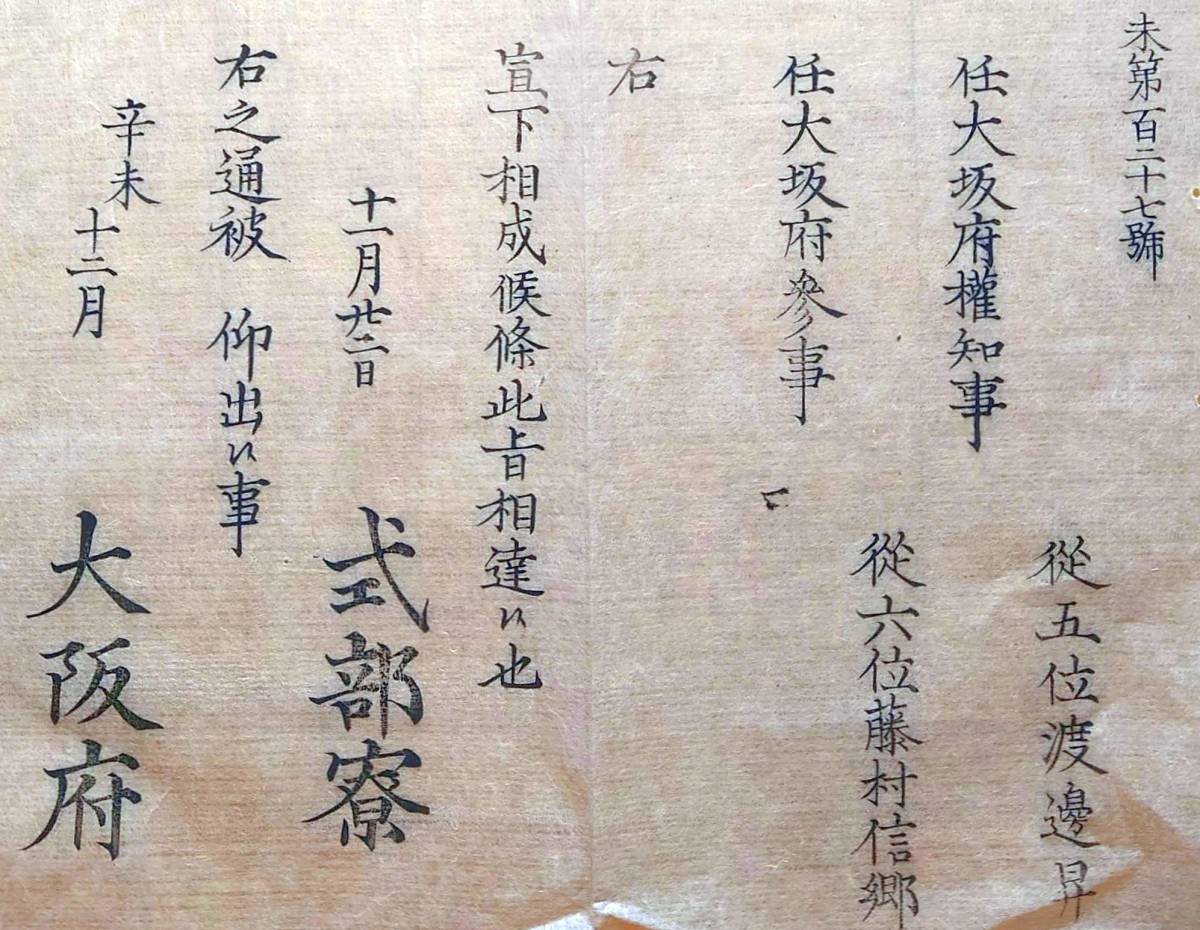 未第百二十七號
任大坂府權知事
從五位渡邊昇
任大坂府參事
從六位藤村信郷
右
宣下相成候條此旨相達候也
十一月廿二日
式部寮
右之通被 仰出候事
辛未
十二月
大阪府